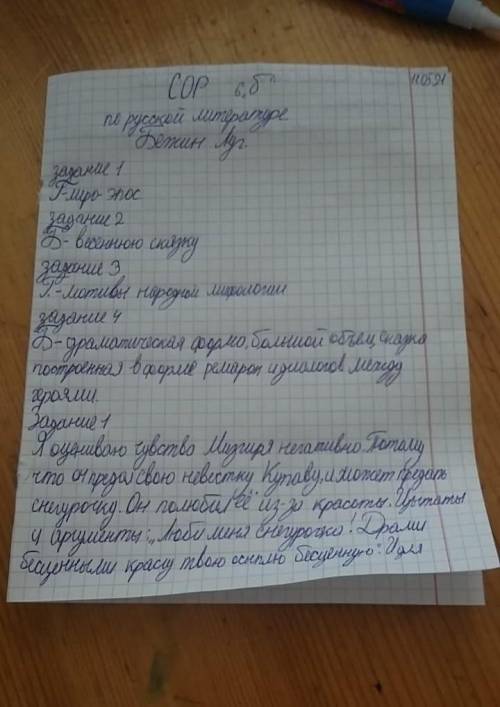 СОР 6 „Б"
11.05.21
по русской литературе
Бежин Луг.
задание 1
Г-лиро-эпос
задание 2
Б-весеннюю сказку
задание 3
Г.-мотивы народной мифологии
задание 4
Б-драматическая форма, большой объем, сказка
построенная в форме ремарок и диалогов между
героями.
Задание 1
Я оцениваю чувство Мизгиря негативно. Потому
что он предал свою невестку Купаву, и может предать
снегурочку. Он полюбил её из-за красоты. Цытаты
и аргументы: „Люби меня снегурочка! Драми
бесценными красу твою осыплю бесценную". И для